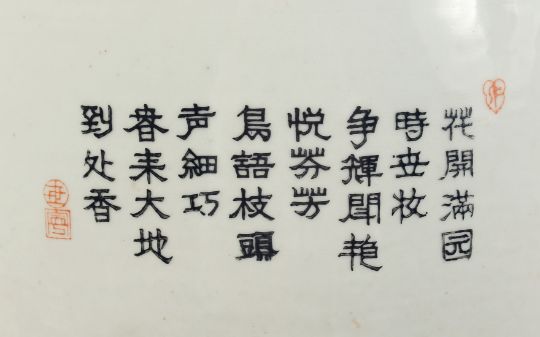 花開滿园
時世妆
争輝聞艳
悦芬芳
鳥語枝頭
声細巧
春来大地
到处香